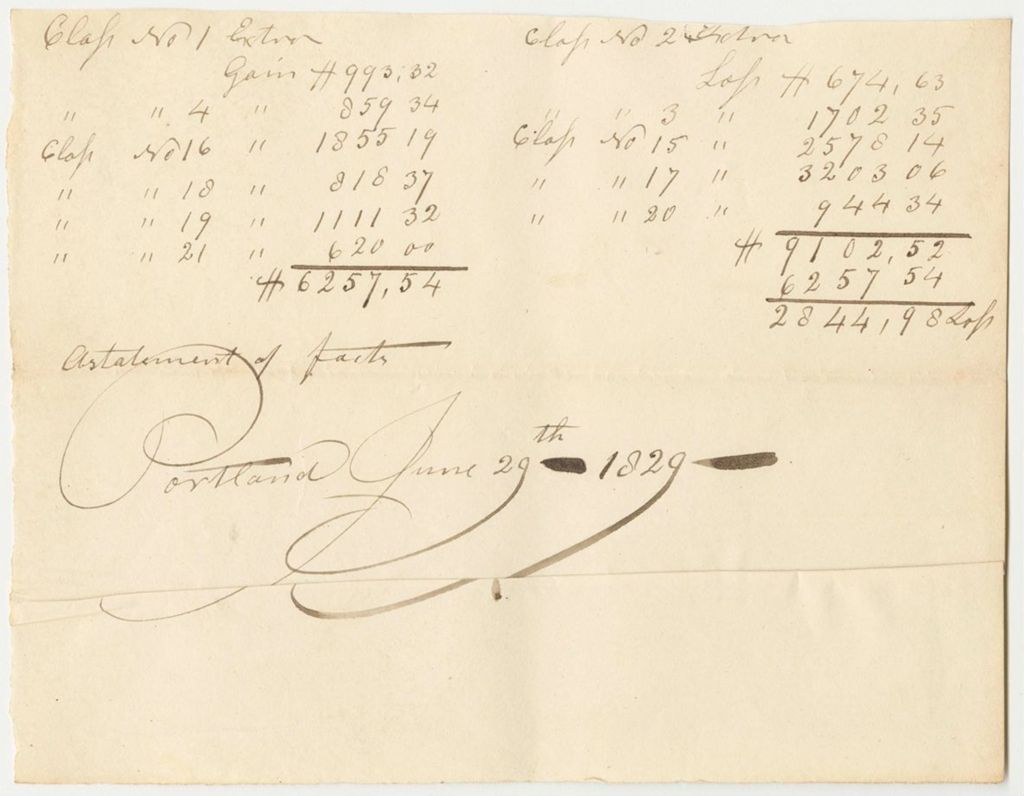 Class No 1 Extra
Gain $993,32
" " 4 " 859 34
Class No 16 " 1855 19
" " 18 " 818 37
" " 19 " 1111 32
" " 21 " 620 00
$6257,54
Class No 2 Extra
Loss $674,63
" " 3 " 1702 35
Class No 15 " 2578 14
" " 17 " 3203 06
" " 20 " 944 34
$9102,52
6257 54
2844,98 Loss
A statement of facts
Portland June 29th 1829